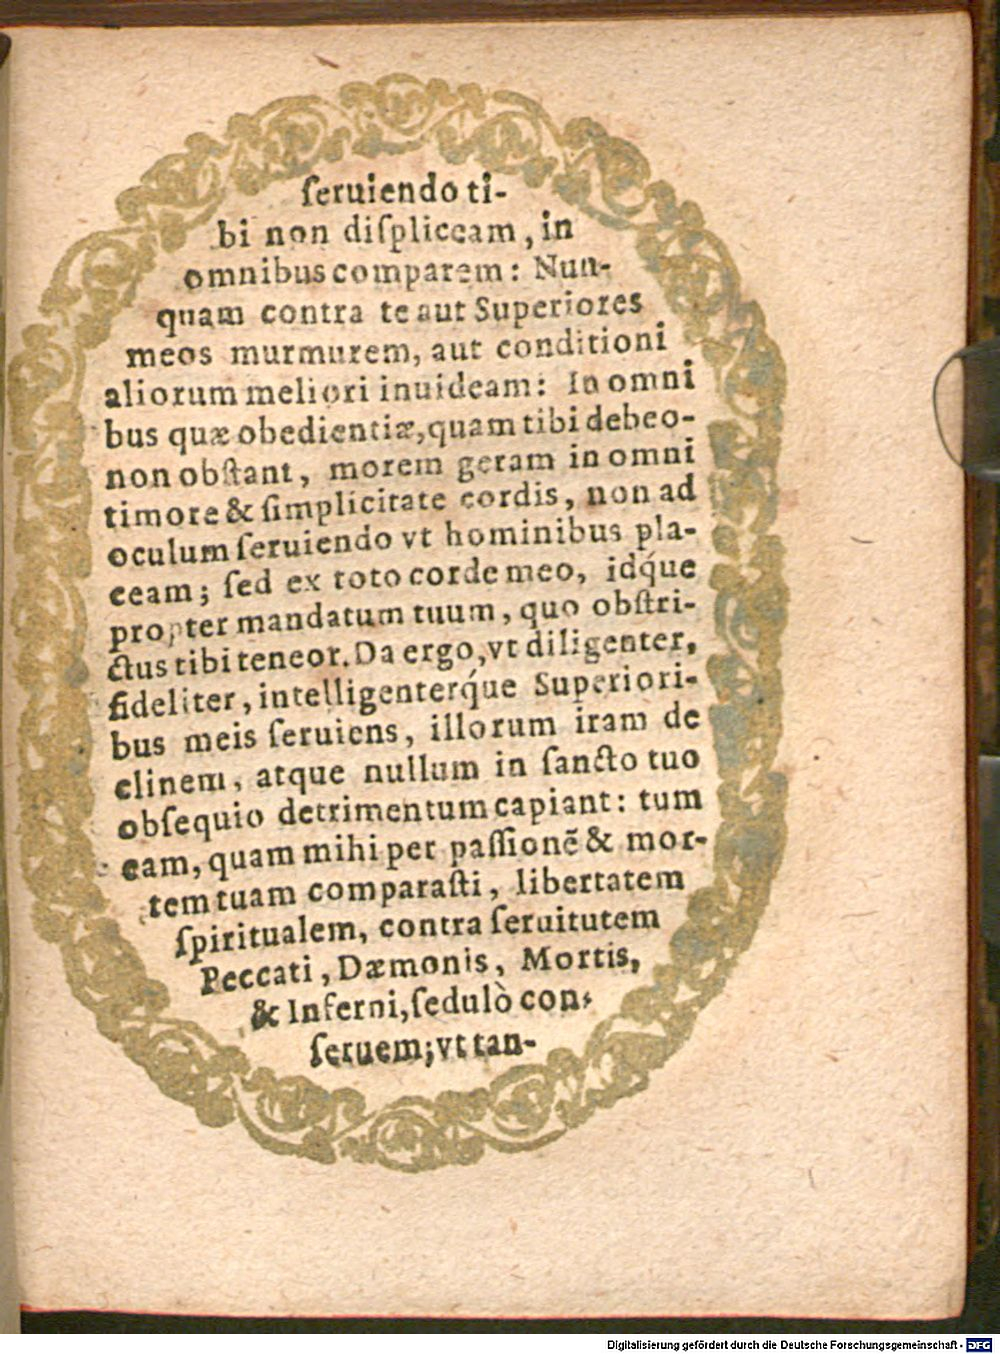 ſeruiendo ti-
bi non diſpliceam, in
omnibus comparem: Nun-
quam contra te aut Superiores
meos murmurem, aut conditioni
aliorum meliori inuideam: In omni
bus quæ obedientiæ, quam tibi debeo-
non obſtant, morem geram in omni
timore & ſimplicitate cordis, non ad
oculum ſeruiendo vt hominibus pla-
ceam; ſed ex toto corde meo, idq́ue
propter mandatum tuum, quo obſtri-
ctus tibi teneor. Da ergo, vt diligenter,
fideliter, intelligenterq́ue Superiori-
bus meis ſeruiens, illorum iram de
clinem, atque nullum in ſancto tuo
obſequio detrimentum capiant: tum
eam, quam mihi per paſſionē & mor-
tem tuam comparaſti, libertatem
ſpiritualem, contra ſeruitutem
Peccati, Dæmonis, Mortis,
& Inferni, ſedulò con-
ſeruem; vt tan-
Digitalisierung gefördert durch die Deutsche Forschungsgemeinschaft - DFG